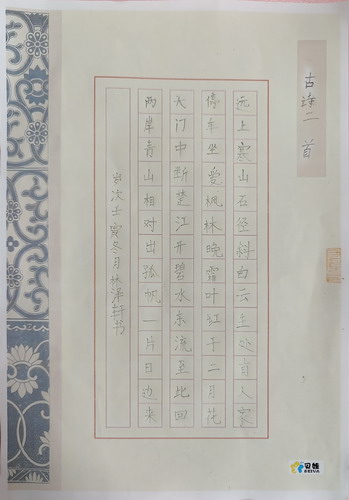 古诗二首
远上寒山石径斜白云生处有人家
停车坐爱枫林晚霜叶红于二月花
天门中断楚江开碧水东流至此回
两岸青山相对出孤帆一片日边来
岁次壬寅冬月林泽轩书
贝娃
BEIVA